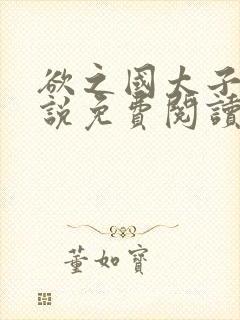 欲之國太子
說免費閱讀
董如寶